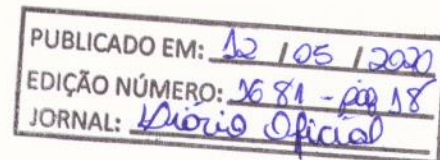 PUBLICADO EM: 12 / 05 / 2020
EDIÇÃO NÚMERO: 1681 - pág 18
JORNAL: Diário Oficial